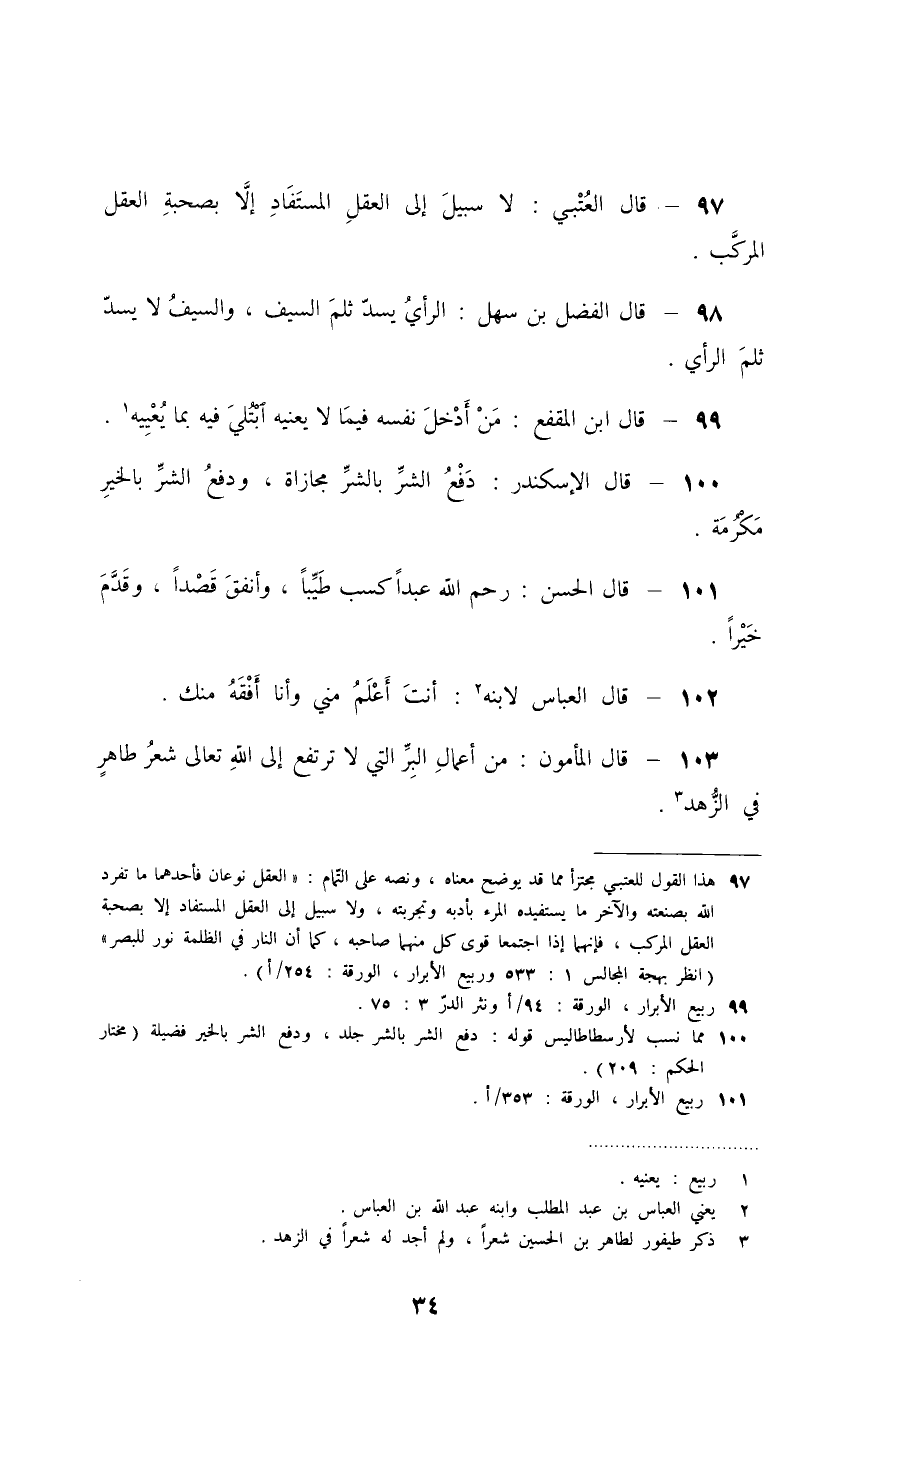 ٩٧ – قال العُتْبي : لا سبيلَ إلى العقلِ المستَفَادِ إلَّا بصحبةِ العقل
المركَّب .
٩٨ – قال الفضل بن سهل : الرأيُ يسدّ ثلمَ السيف ، والسيفُ لا يسدّ
ثلمَ الرأي .
٩٩ – قال ابن المقفع : مَنْ أَدْخلَ نفسه فيمَا لا يعنيه ٱبْتُليَ فيه بما يُعْيِيه١ .
١٠٠ – قال الإسكندر : دَفْعُ الشرِّ بالشرِّ مجازاة ، ودفعُ الشرِّ بالخيرِ
مَكْرُمَة .
١٠١ – قال الحسن : رحم الله عبداً كسب طَيِّباً ، وأنفقَ قَصْداً ، وقَدَّمَ
خَيْراً .
١٠٢ – قال العباس لابنه٢ : أنتَ أَعْلَمُ مني وأنا أَفْقَهُ منك .
١٠٣ – قال المأمون : من أعمالِ البِرِّ التي لا ترتفع إلى اللهِ تعالى شعرُ طاهرٍ
في الزُّهد٣ .
٩٧ هذا القول للعتبي مجتزأ مما قد يوضح معناه ، ونصه على التمام : « العقل نوعان فأحدهما ما تفرد
الله بصنعته والآخر ما يستفيده المرء بأدبه وتجربته ، ولا سبيل إلى العقل المستفاد إلا بصحبة
العقل المركب ، فإنهما إذا اجتمعا قوى كل منهما صاحبه ، كما أن النار في الظلمة نور للبصر»
(انظر بهجة المجالس ١ : ٥٣٣ وربيع الأبرار ، الورقة : ٢٥٤/أ) .
٩٩ ربيع الأبرار ، الورقة : ٩٤/أ ونثر الدرّ ٣ : ٧٥ .
١٠٠ مما نسب لأرسطاطاليس قوله : دفع الشر بالشر جلد ، ودفع الشر بالخير فضيلة (مختار
الحكم : ٢٠٩) .
١٠١ ربيع الأبرار ، الورقة : ٣٥٣/أ .
١ ربيع : يعنيه .
٢ يعني العباس بن عبد المطلب وابنه عبد الله بن العباس .
٣ ذكر طيفور لطاهر بن الحسين شعراً ، ولم أجد له شعراً في الزهد .
٣٤